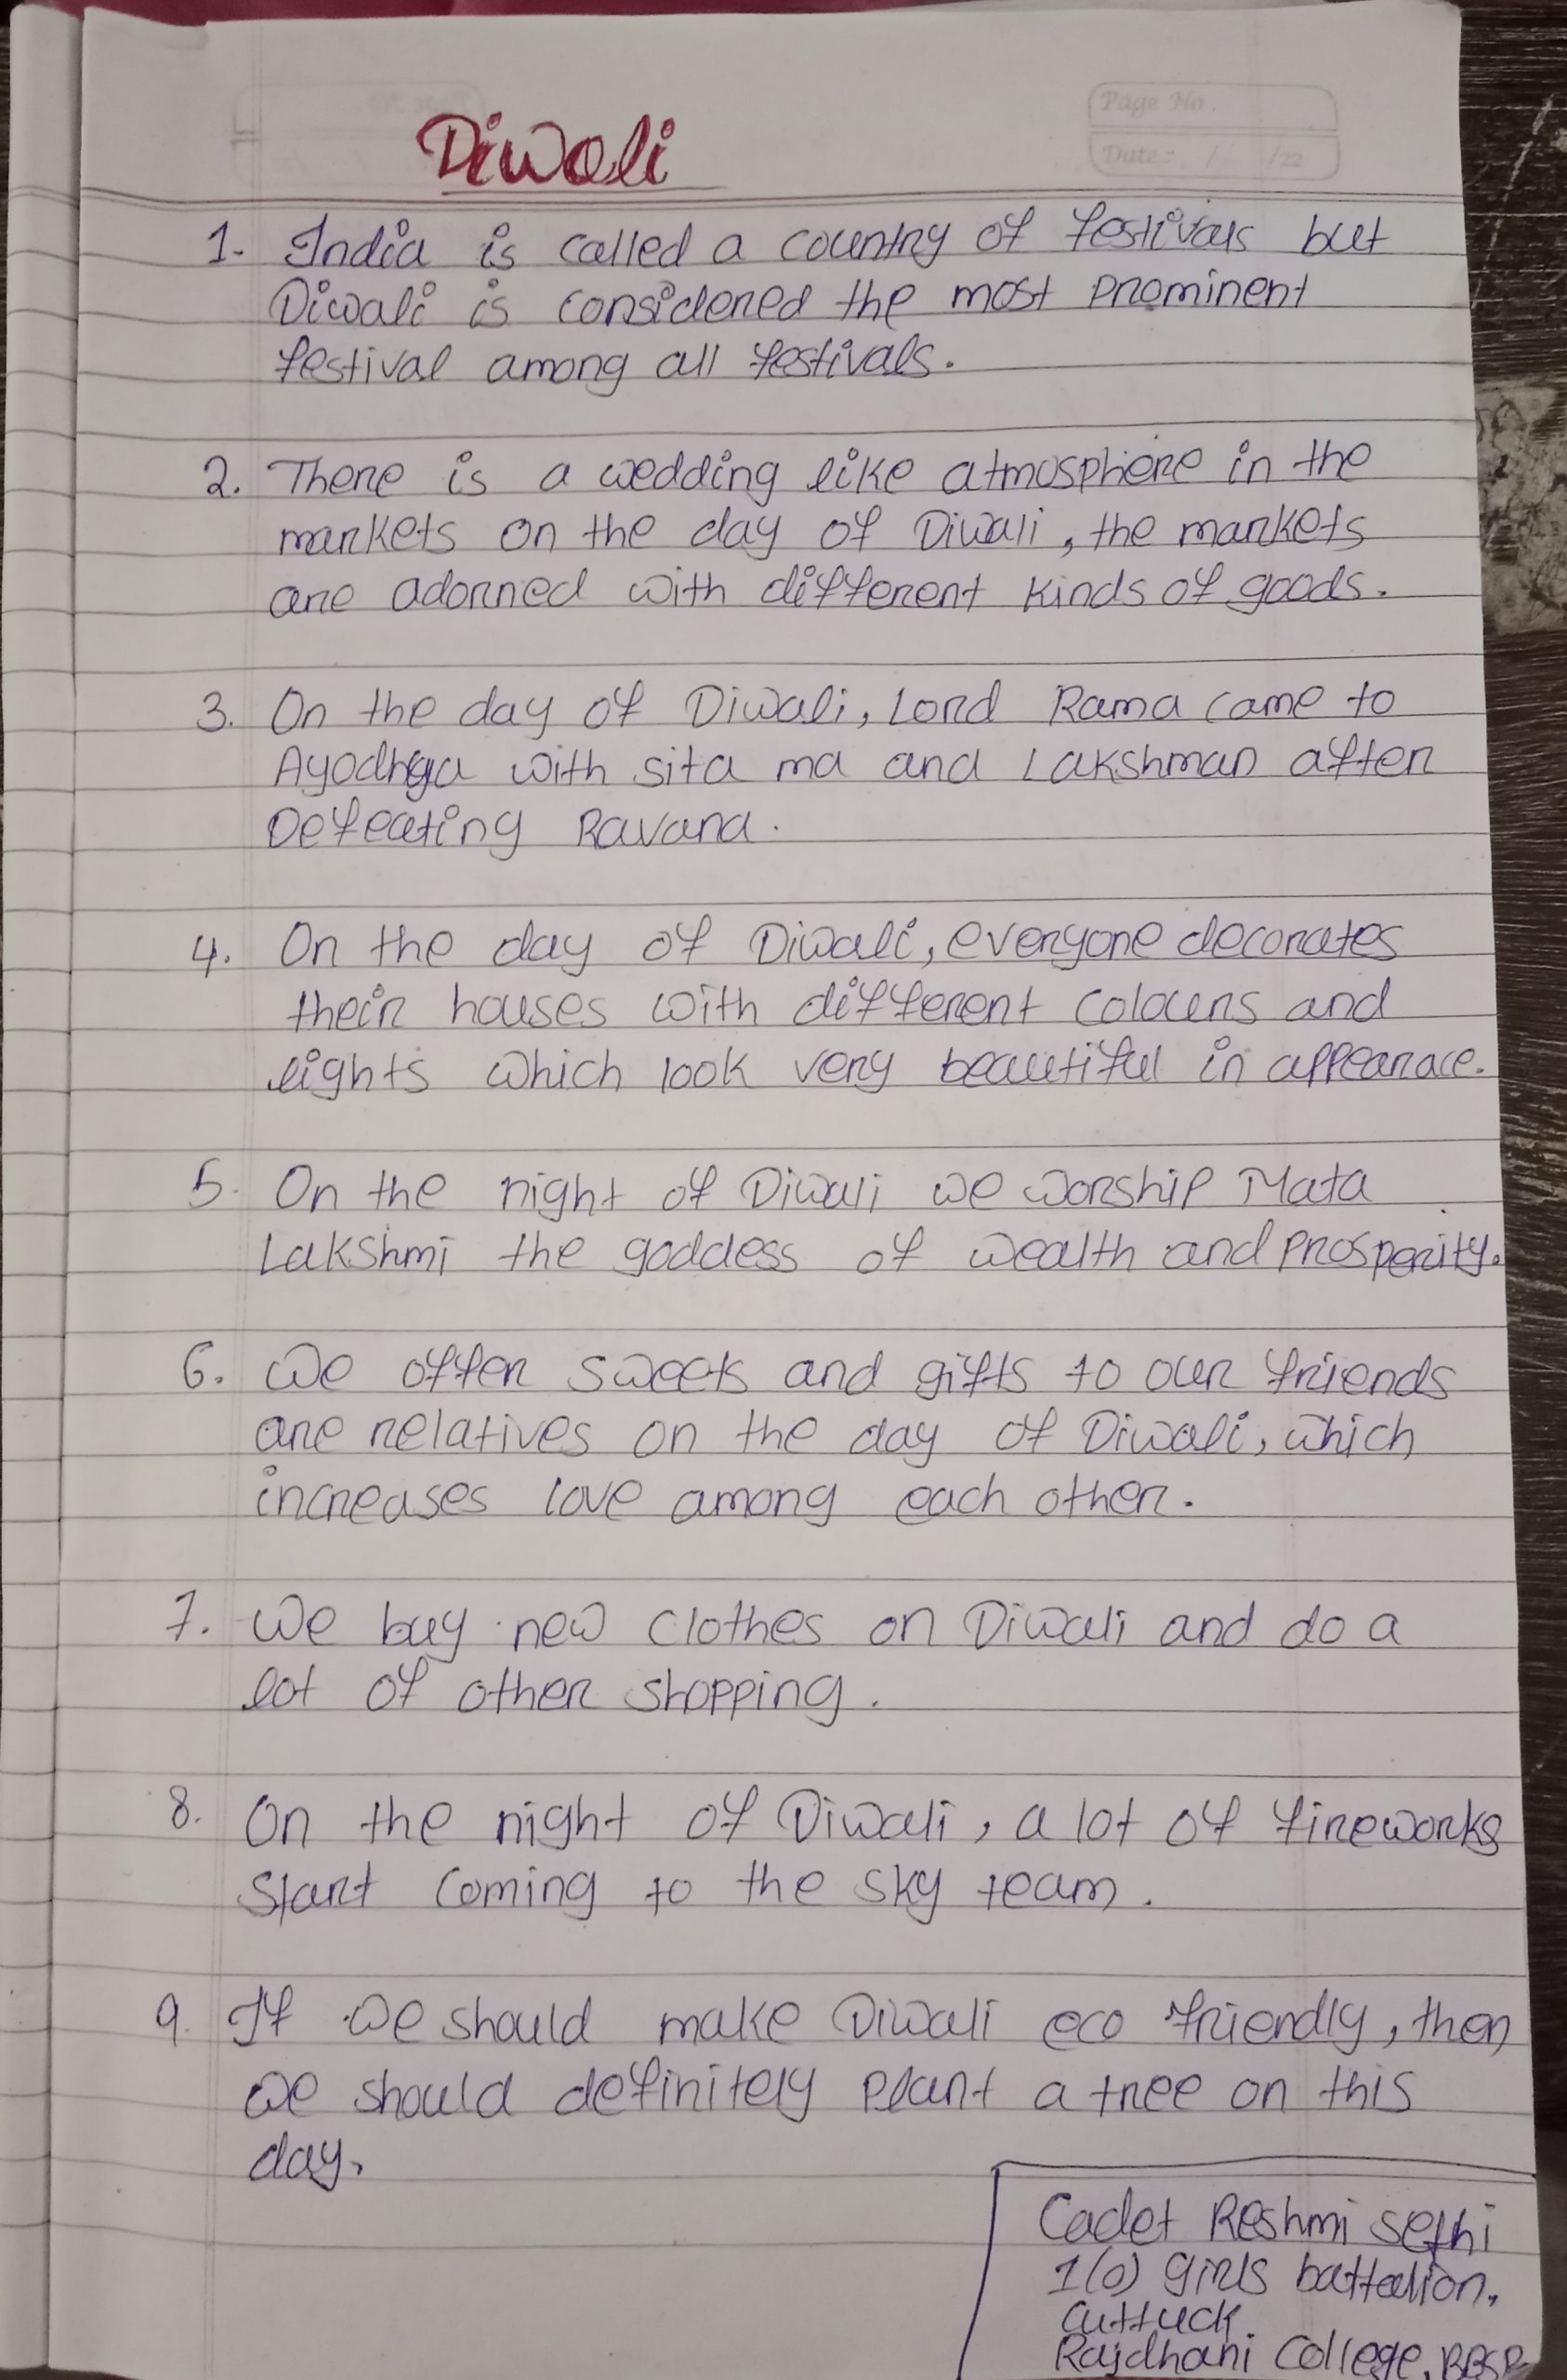 Page No.
Date:- / /22
Diwali
1. India is called a country of festivals but
Diwali is considered the most prominent
festival among all festivals.
2. There is a wedding like atmosphere in the
markets on the day of Diwali, the markets
are adorned with different kinds of goods.
3. On the day of Diwali, Lord Rama came to
Ayodhya with sita ma and Lakshman after
Defeating Ravana.
4. On the day of Diwali, everyone decorates
their houses with different colours and
lights which look very beautiful in appearace.
5. On the night of Diwali we worship Mata
Lakshmi the goddess of wealth and prosperity.
6. We offer sweets and gifts to our friends
are relatives on the day of Diwali, which
increases love among each other.
7. We buy new clothes on Diwali and do a
lot of other shopping.
8. On the night of Diwali, a lot of fireworks
start coming to the sky team.
9. If we should make Diwali eco friendly, then
we should definitely plant a tree on this
day.
Cadet Reshmi sethi
1(o) girls battalion,
cuttuck.
Rajdhani College, BBSR